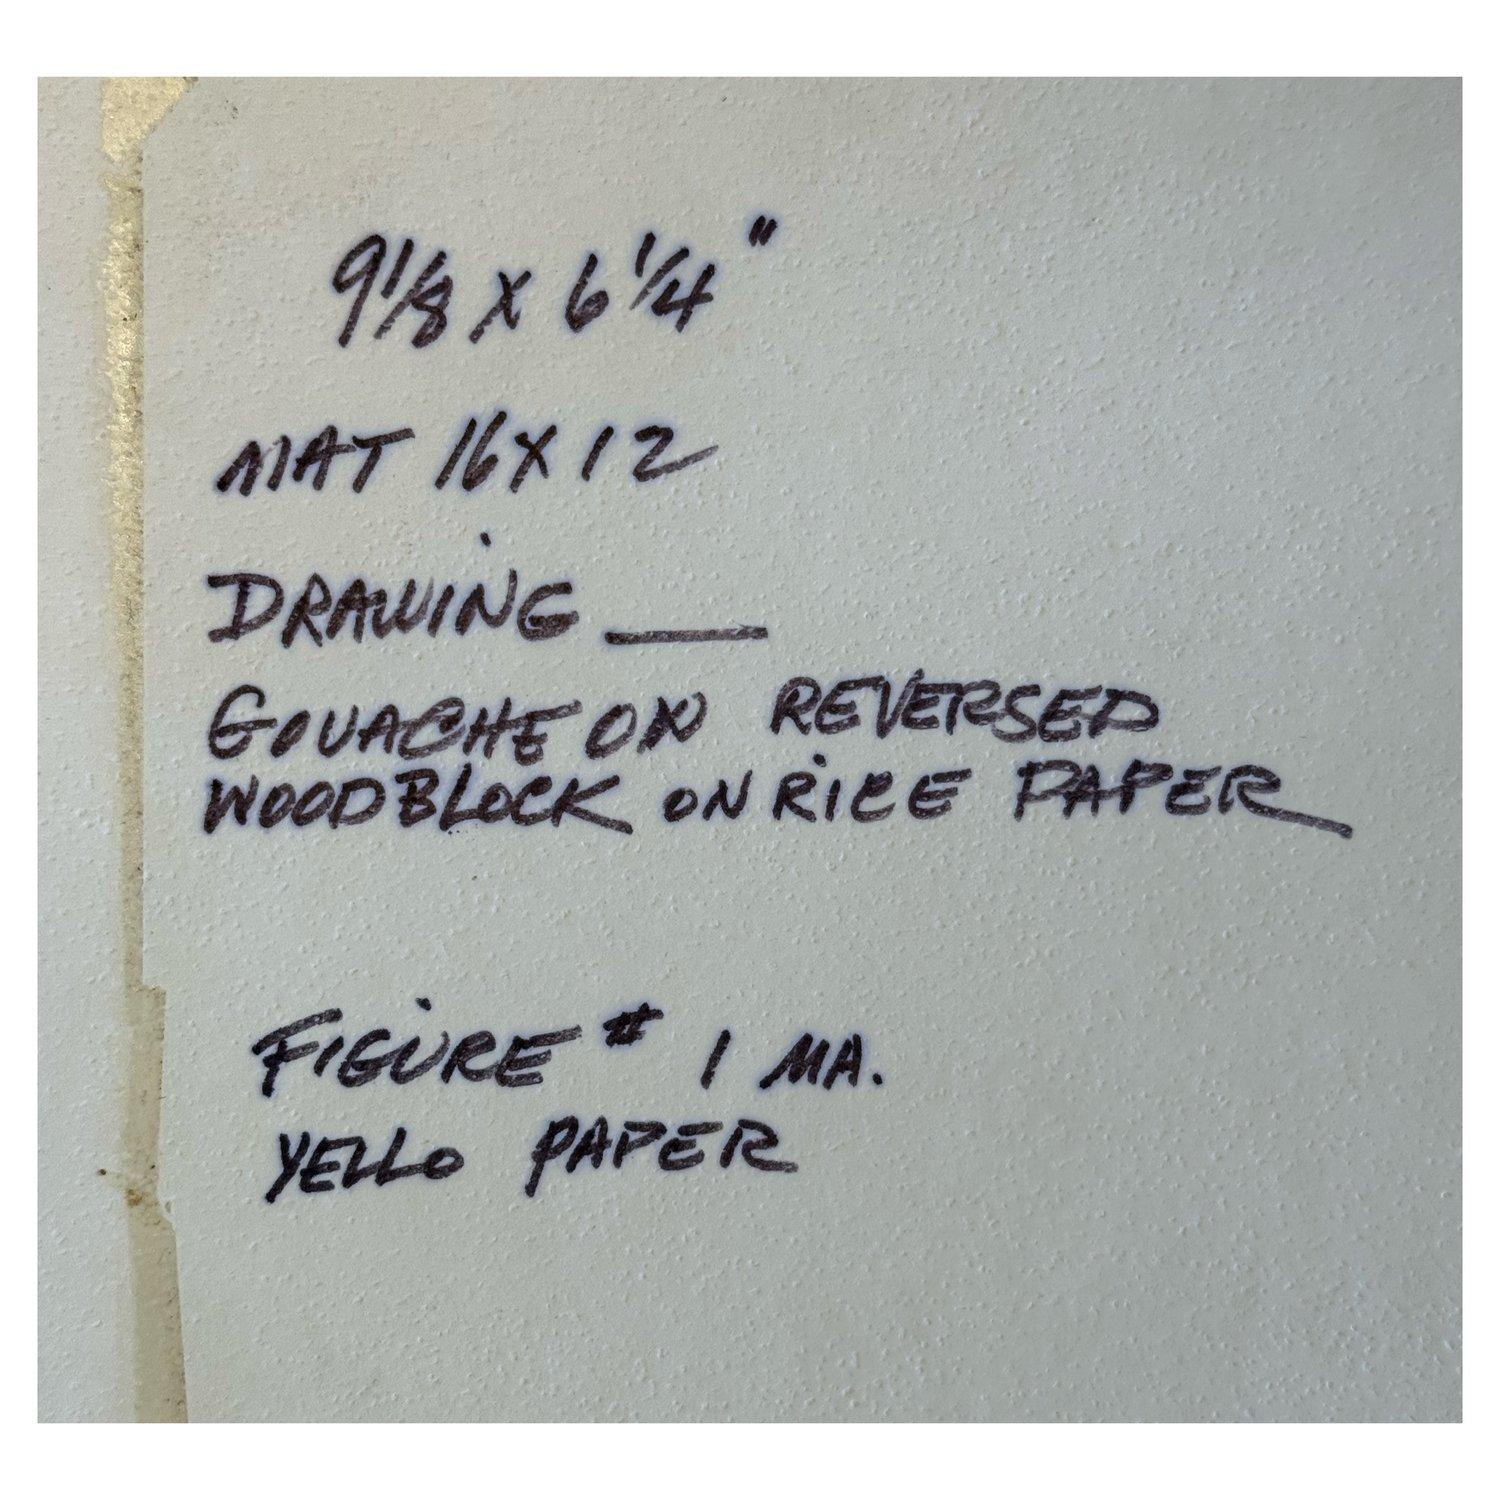 9 1/8 X 6 1/4"
MAT 16X12
DRAWING —
GOUACHE ON REVERSED
WOODBLOCK ON RICE PAPER
FIGURE # 1 MA.
YELLO PAPER